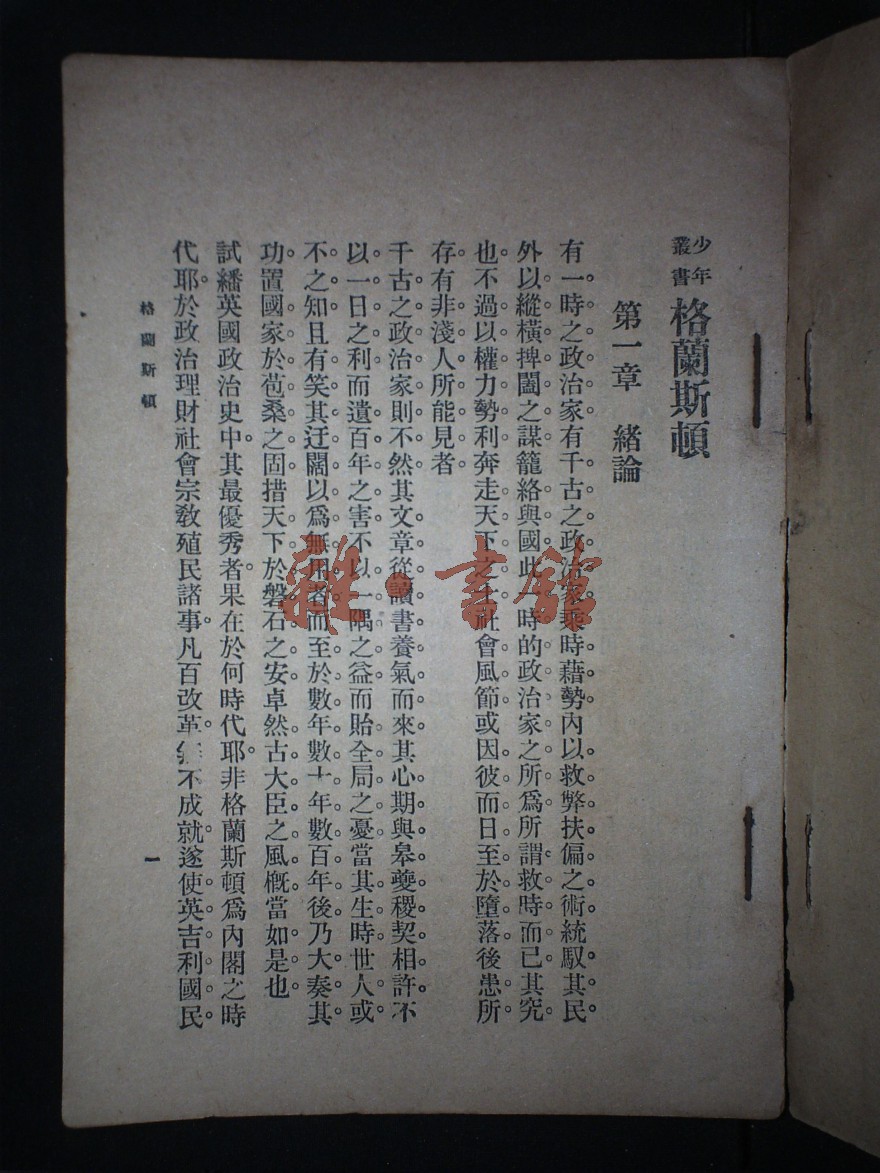 少年叢書 格蘭斯頓
第一章 緒論
有一時之政治家有千古之政治家乘時藉勢內以救弊扶偏之術統馭其民
外以縱橫捭闔之謀籠絡與國此一時的政治家之所爲所謂救時而已其究
也不過以權力勢利奔走天下之士社會風節或因彼而日至於墮落後患所
存有非淺人所能見者
千古之政治家則不然其文章從讀書養氣而來其心期與皋夔稷契相許不
以一日之利而遺百年之害不以一隅之益而貽全局之憂當其生時世人或
不之知且有笑其迂闊以爲無用者而至於數年數十年數百年後乃大奏其
功置國家於苞桑之固措天下於磐石之安卓然古大臣之風槪當如是也
試繙英國政治史中。其最優秀者。果在於何時代耶。非格蘭斯頓爲內閣之時
代耶。於政治理財社會宗教殖民諸事。凡百改革。不成就。遂使英吉利國民
格蘭斯頓
一
雜·書館